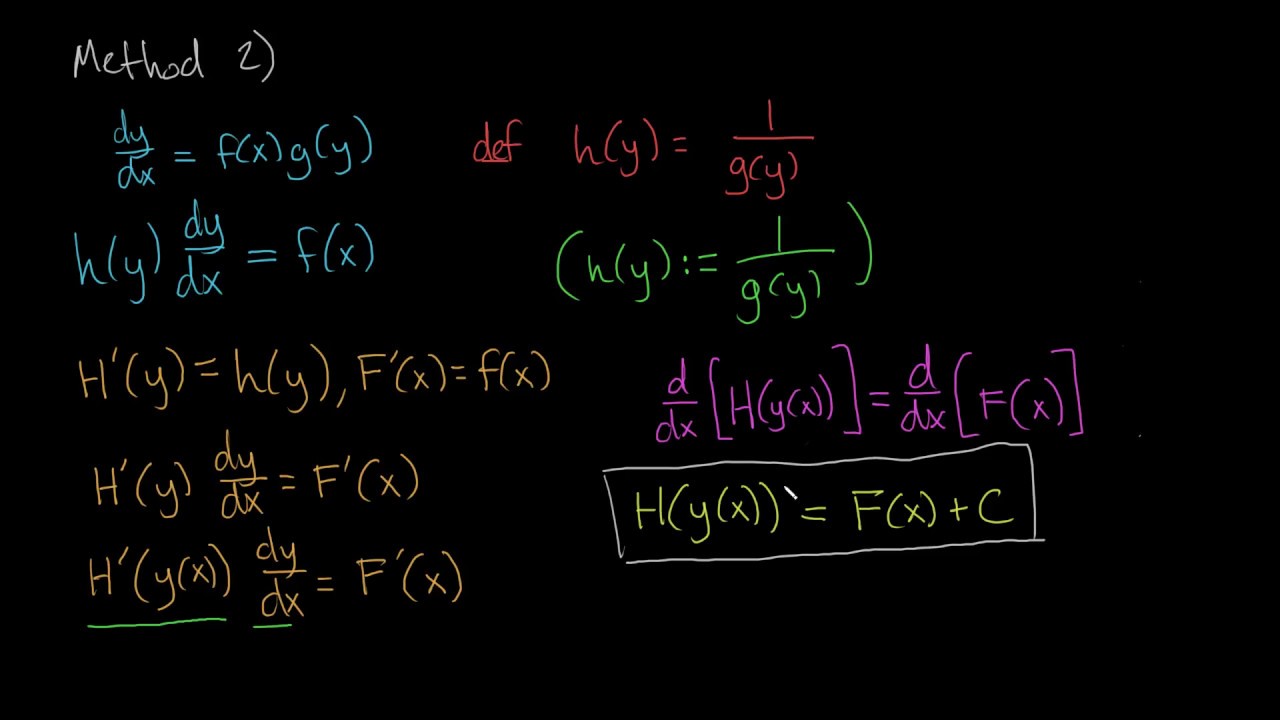 Method 2)
dy/dx = f(x)g(y)
def h(y) = 1/g(y)
h(y) dy/dx = f(x)
(h(y) := 1/g(y))
H'(y) = h(y), F'(x) = f(x)
d/dx [H(y(x))] = d/dx [F(x)]
H'(y) dy/dx = F'(x)
H(y(x)) = F(x) + C
H'(y(x)) dy/dx = F'(x)